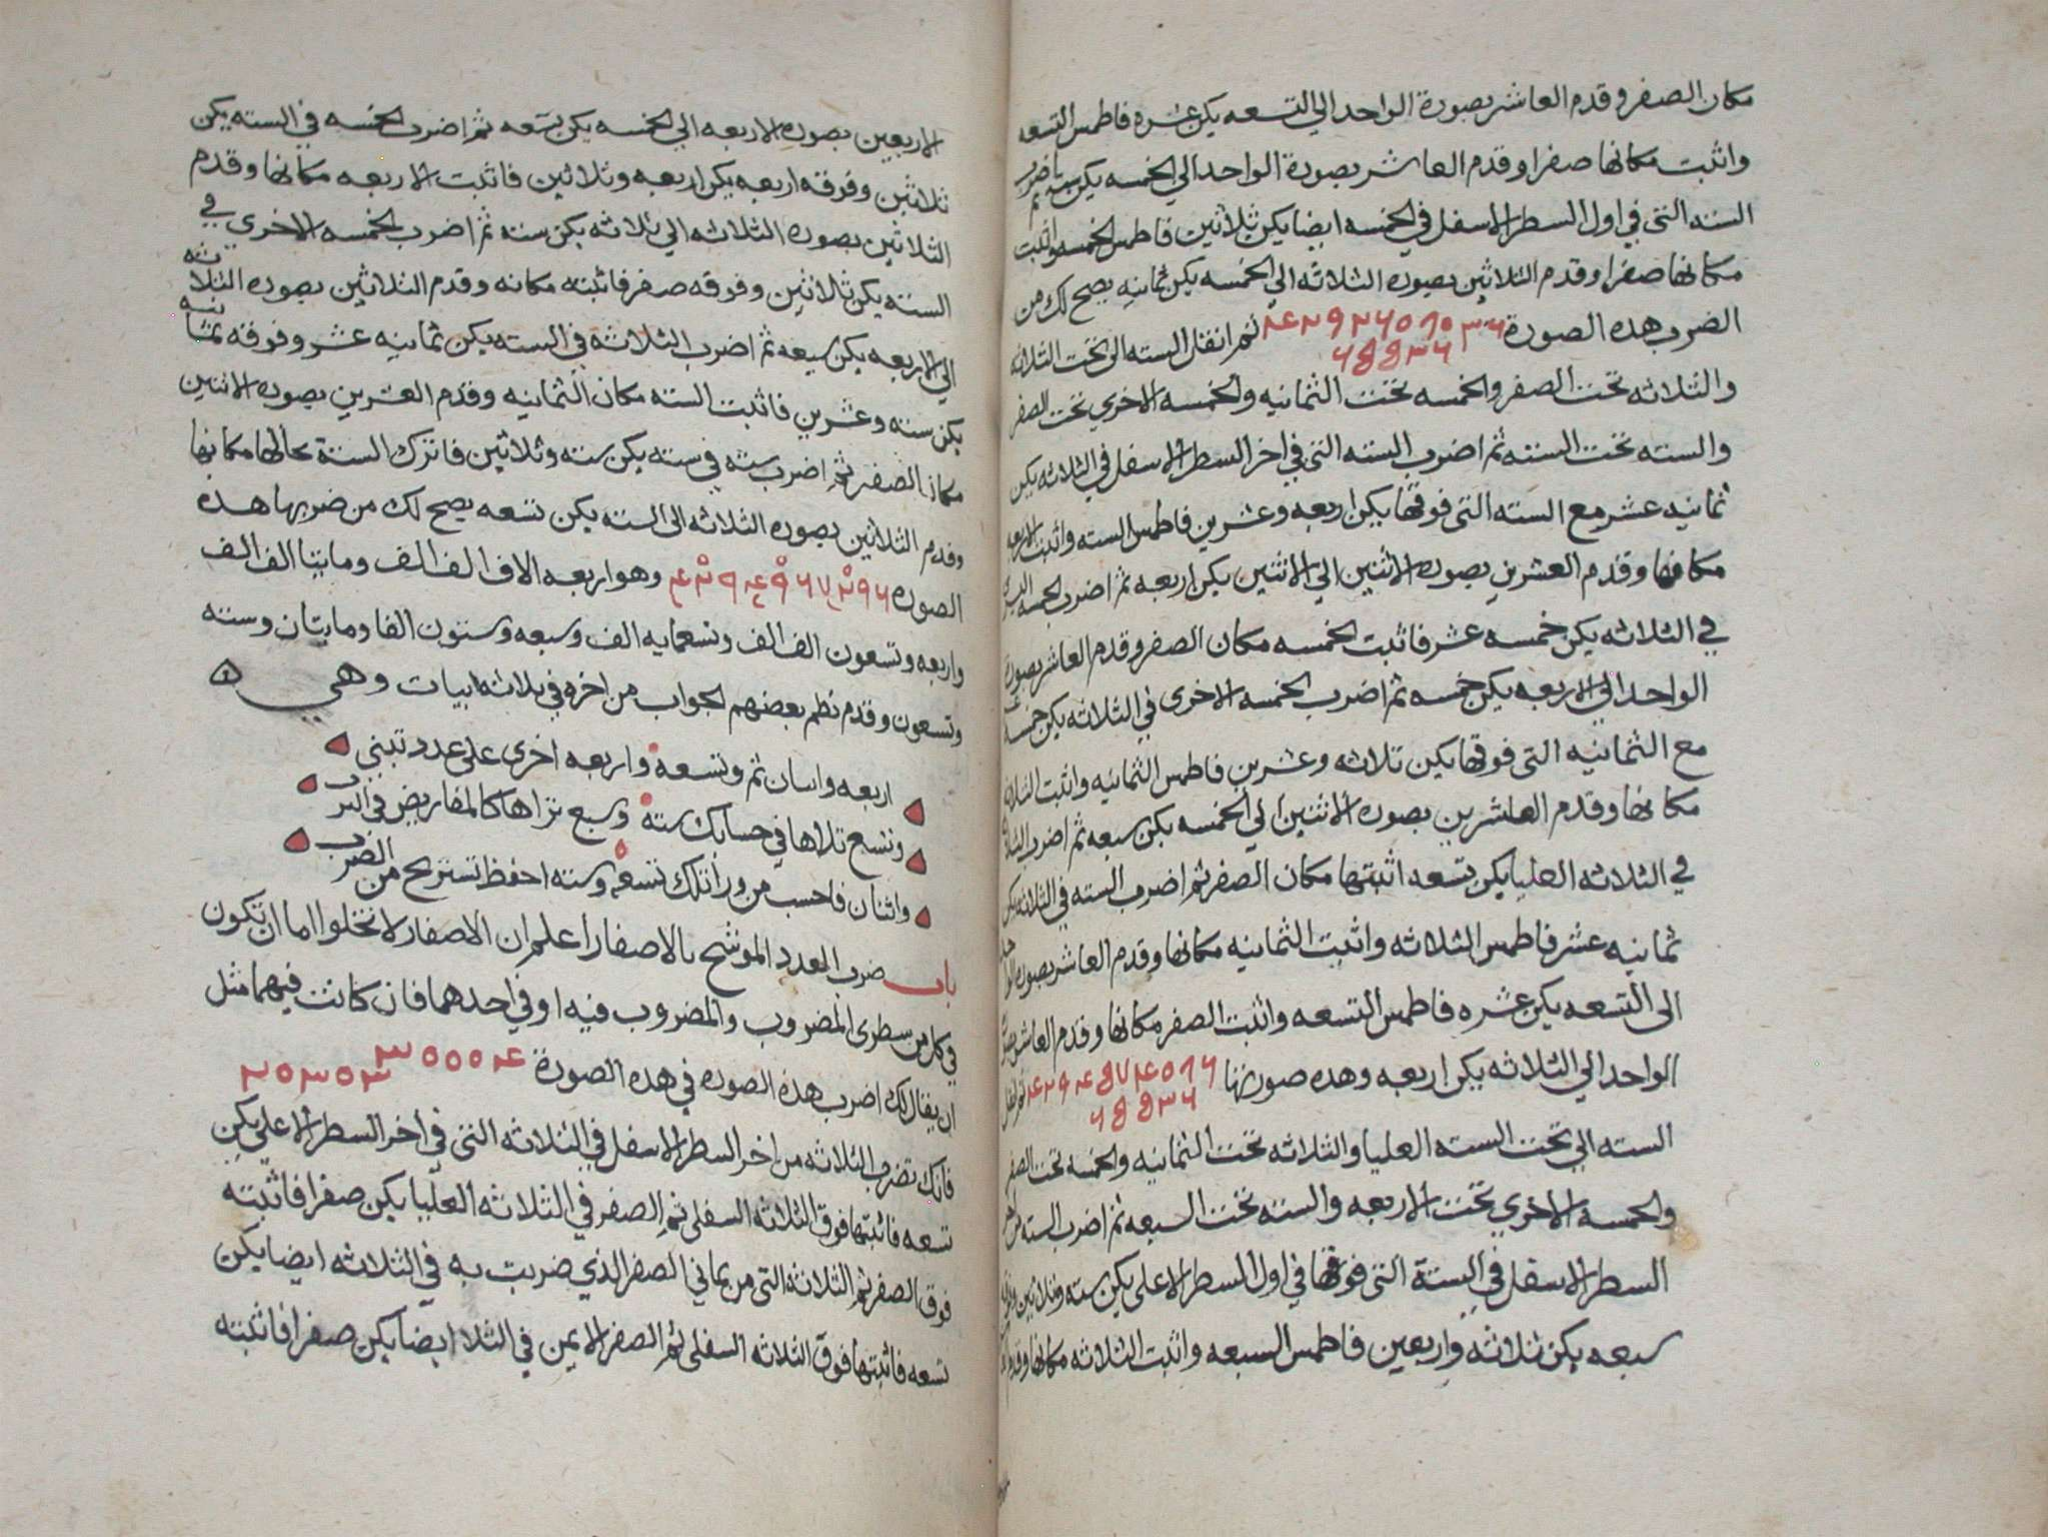 مكان الصفر وقدم العاشر بصورة الواحد الي التسعه يكن عشره فاطمس التسعه
واثبت مكانها صفرا وقدم العاشر بصورة الواحد الي الخمسه يكن سته ثم تاضرب
السته التى في اول السطر الاسفل في الخمسه ايضا يكن ثلاثين فاطمس الخمسه واثبت
مكانها صفرا وقدم الثلاثين بصوره الثلاثه الي الخمسه يكن ثمانيه يصح لك من
الضرب هذه الصورة ثم انقل السته الى تحت الثلاثه
والثلاثه تحت الصفر والخمسه تحت الثمانيه والخمسه الاخري تحت الصفر
والسته تحت السته ثم اضرب السته التى في اخر السطر الاسفل في الثلاثه يكن
ثمانيه عشر مع السته التى فوقها يكن اربعه وعشرين فاطمس السته واثبت الاربعه
مكانها وقدم العشرين بصوره الاثنين الي الاثنين يكن اربعه ثم اضرب الخمسه
في الثلاثه يكن خمسه عشر فاثبت الخمسه مكان الصفر وقدم العاشر بصورة
الواحد الي الاربعه يكن خمسه ثم اضرب الخمسه الاخرى في الثلاثه يكن خمسه
مع الثمانيه التى فوقها يكن ثلاثه وعشرين فاطمس الثمانيه واثبت الثلاثه
مكانها وقدم العشرين بصوره الاثنين الي الخمسه يكن سبعه ثم اضرب الثلاثه
في الثلاثه العليا يكن تسعه اثبتها مكان الصفر ثم اضرب السته في الثلاثه يكن
ثمانيه عشر فاطمس الثلاثه واثبت الثمانيه مكانها وقدم العاشر بصوره
الى التسعه يكن عشره فاطمس التسعه واثبت الصفر مكانها وقدم العاشر بصورة
الواحد الي الثلاثه يكن اربعه وهذه صورتها
السته الي تحت السته العليا والثلاثه تحت الثمانيه والخمسه تحت الصفر
والخمسه الاخري تحت الاربعه والسته تحت السبعه ثم اضرب السته من اخر
السطر الاسفل في الستة التى فوقها في اول السطر الاعلى يكن سته وثلاثين
سبعه يكن ثلاثه واربعين فاطمس السبعه واثبت الثلاثه مكانها وقدم
الاربعين بصوره الاربعه الي الخمسه يكن تسعه ثم اضرب الخمسه في السته يكن
ثلاثين وفوقه اربعه يكن اربعه وثلاثين فاثبت الاربعه مكانها وقدم
الثلاثين بصوره الثلاثه الي ثلاثه يكن سته ثم اضرب الخمسه الاخرى في
السته يكن ثلاثين وفوقه صفر فاثبته مكانه وقدم الثلاثين بصوره الثلاثه
الي الاربعه يكن سبعه ثم اضرب الثلاثة في السته يكن ثمانيه عشر وفوقه ثمانيه
يكن سته وعشرين فاثبت السته مكان الثمانيه وقدم العشرين بصوره الاثنين
مكان الصفر ثم اضرب سته في سته يكن سته وثلاثين فاترك الستة بحالها مكانها
وقدم الثلاثين بصوره الثلاثه الى السته يكن تسعه يصح لك من ضربها هذه
الصوره وهو اربعه الاف الف الف ومايتا الف الف
واربعه وتسعون الف الف وتسعمايه الف وسبعه وستون الفا ومايتان وسته
وتسعون وقدم نظم بعضهم الجواب من اخره في ثلاثه ابيات وهي
اربعه واثنان ثم وتسعه واربعه اخرى على عدد تبنى
وتسع تلاها في حسابك سته وسبع تراها كالمفاريض في الترب
واثنان فاحسب من ورا تلك تسعه وسته احفظ تستريح من الضرب
باب ضرب العدد الموشح بالاصفار اعلم ان الاصفار لا تخلوا اما ان تكون
في كل من سطرى المضروب والمضروب فيه او في احدهما فان كانت فيهما مثل
ان يقال لك اضرب هذه الصوره في هذه الصورة
فانك تضرب الثلاثه من اخر السطر الاسفل في الثلاثه التى في اخر السطر الاعلي يكن
تسعه فاثبتها فوق الثلاثه السفلى ثم الصفر في الثلاثه العليا يكن صفرا فاثبته
فوق الصفر ثم الثلاثه التى من يماني الصفر الذي ضربت به في الثلاثه ايضا يكن
تسعه فاثبتها فوق الثلاثه السفلى ثم الصفر الايمن في الثلاا ايضا يكن صفرا فاثبته